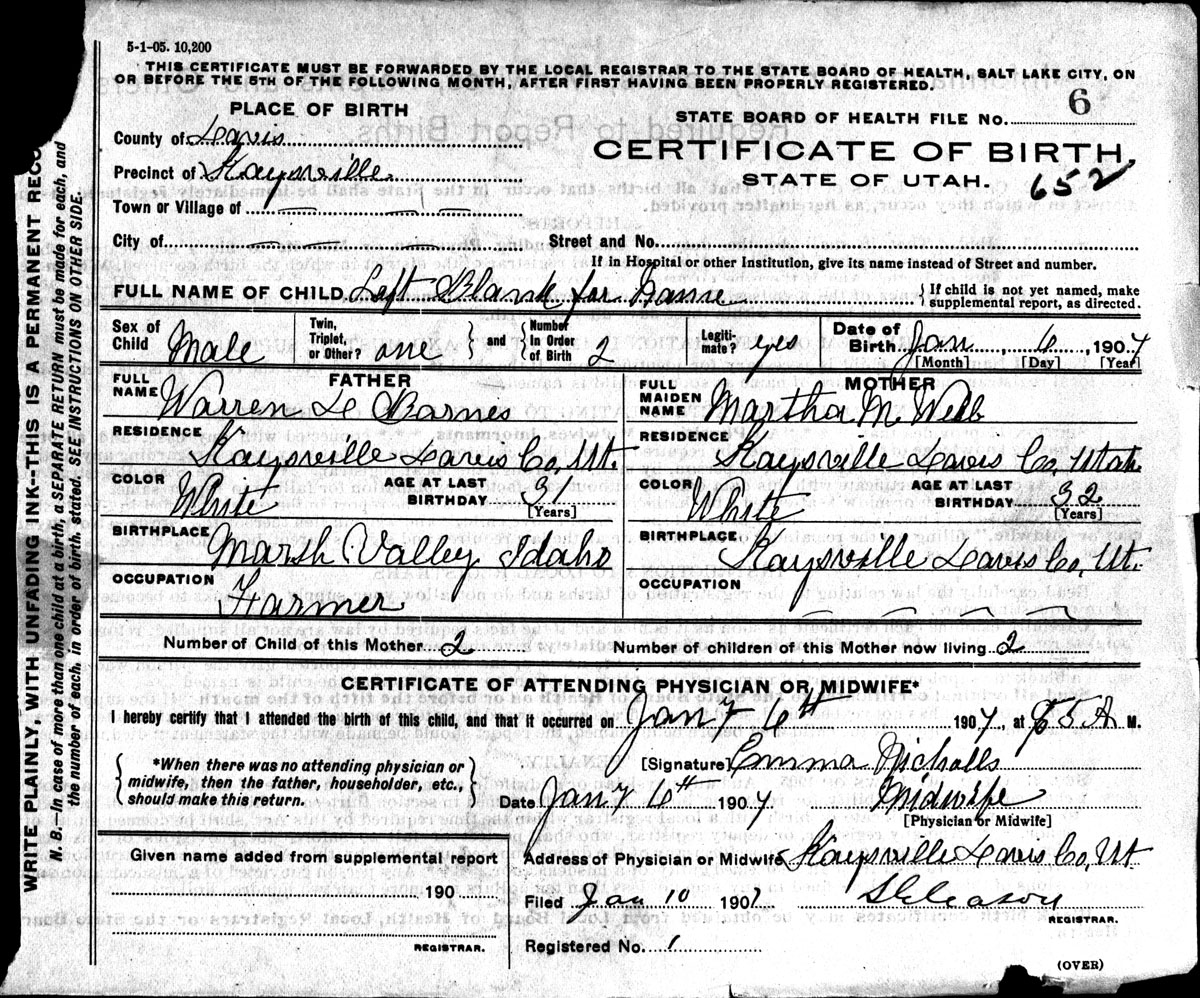 5-1-05. 10,200
THIS CERTIFICATE MUST BE FORWARDED BY THE LOCAL REGISTRAR TO THE STATE BOARD OF HEALTH, SALT LAKE CITY, ON
OR BEFORE THE 5TH OF THE FOLLOWING MONTH, AFTER FIRST HAVING BEEN PROPERLY REGISTERED.
PLACE OF BIRTH
STATE BOARD OF HEALTH FILE NO. 6
County of Davis
CERTIFICATE OF BIRTH,
Precinct of Kaysville
STATE OF UTAH. 652
Town or Village of
City of Street and No.
If in Hospital or other Institution, give its name instead of Street and number.
FULL NAME OF CHILD Left Blank for Name { If child is not yet named, make supplemental report, as directed.
Sex of Child Male Twin, Triplet, or Other? one } and { Number In Order of Birth 2 Legiti-mate? yes Date of Birth Jan 6, 1907
[Month] [Day] [Year]
FATHER
FULL NAME Warren L Barnes
MOTHER
FULL MAIDEN NAME Martha M. Webb
RESIDENCE Kaysville Davis Co, Ut.
RESIDENCE Kaysville Davis Co, Utah
COLOR White AGE AT LAST BIRTHDAY 31 [Years]
COLOR White AGE AT LAST BIRTHDAY 32 [Years]
BIRTHPLACE Marsh Valley Idaho
BIRTHPLACE Kaysville Davis Co, Ut.
OCCUPATION Farmer
OCCUPATION
Number of Child of this Mother 2 Number of children of this Mother now living 2
CERTIFICATE OF ATTENDING PHYSICIAN OR MIDWIFE*
I hereby certify that I attended the birth of this child, and that it occurred on Jany 6th 1907, at A M.
{ *When there was no attending physician or midwife, then the father, householder, etc., should make this return. }
[Signature] Emma Nicholls
Date Jany 6th 1907 Midwife
[Physician or Midwife]
Given name added from supplemental report
190
REGISTRAR.
Address of Physician or Midwife Kaysville Davis Co, Ut
Filed Jan 10 1907 Gleason
REGISTRAR.
Registered No. 1
(OVER)
WRITE PLAINLY, WITH UNFADING INK--THIS IS A PERMANENT RECO
N. B. In case of more than one child at a birth, a SEPARATE RETURN must be made for each, and
the number of each, in order of birth, stated. SEE INSTRUCTIONS ON OTHER SIDE.